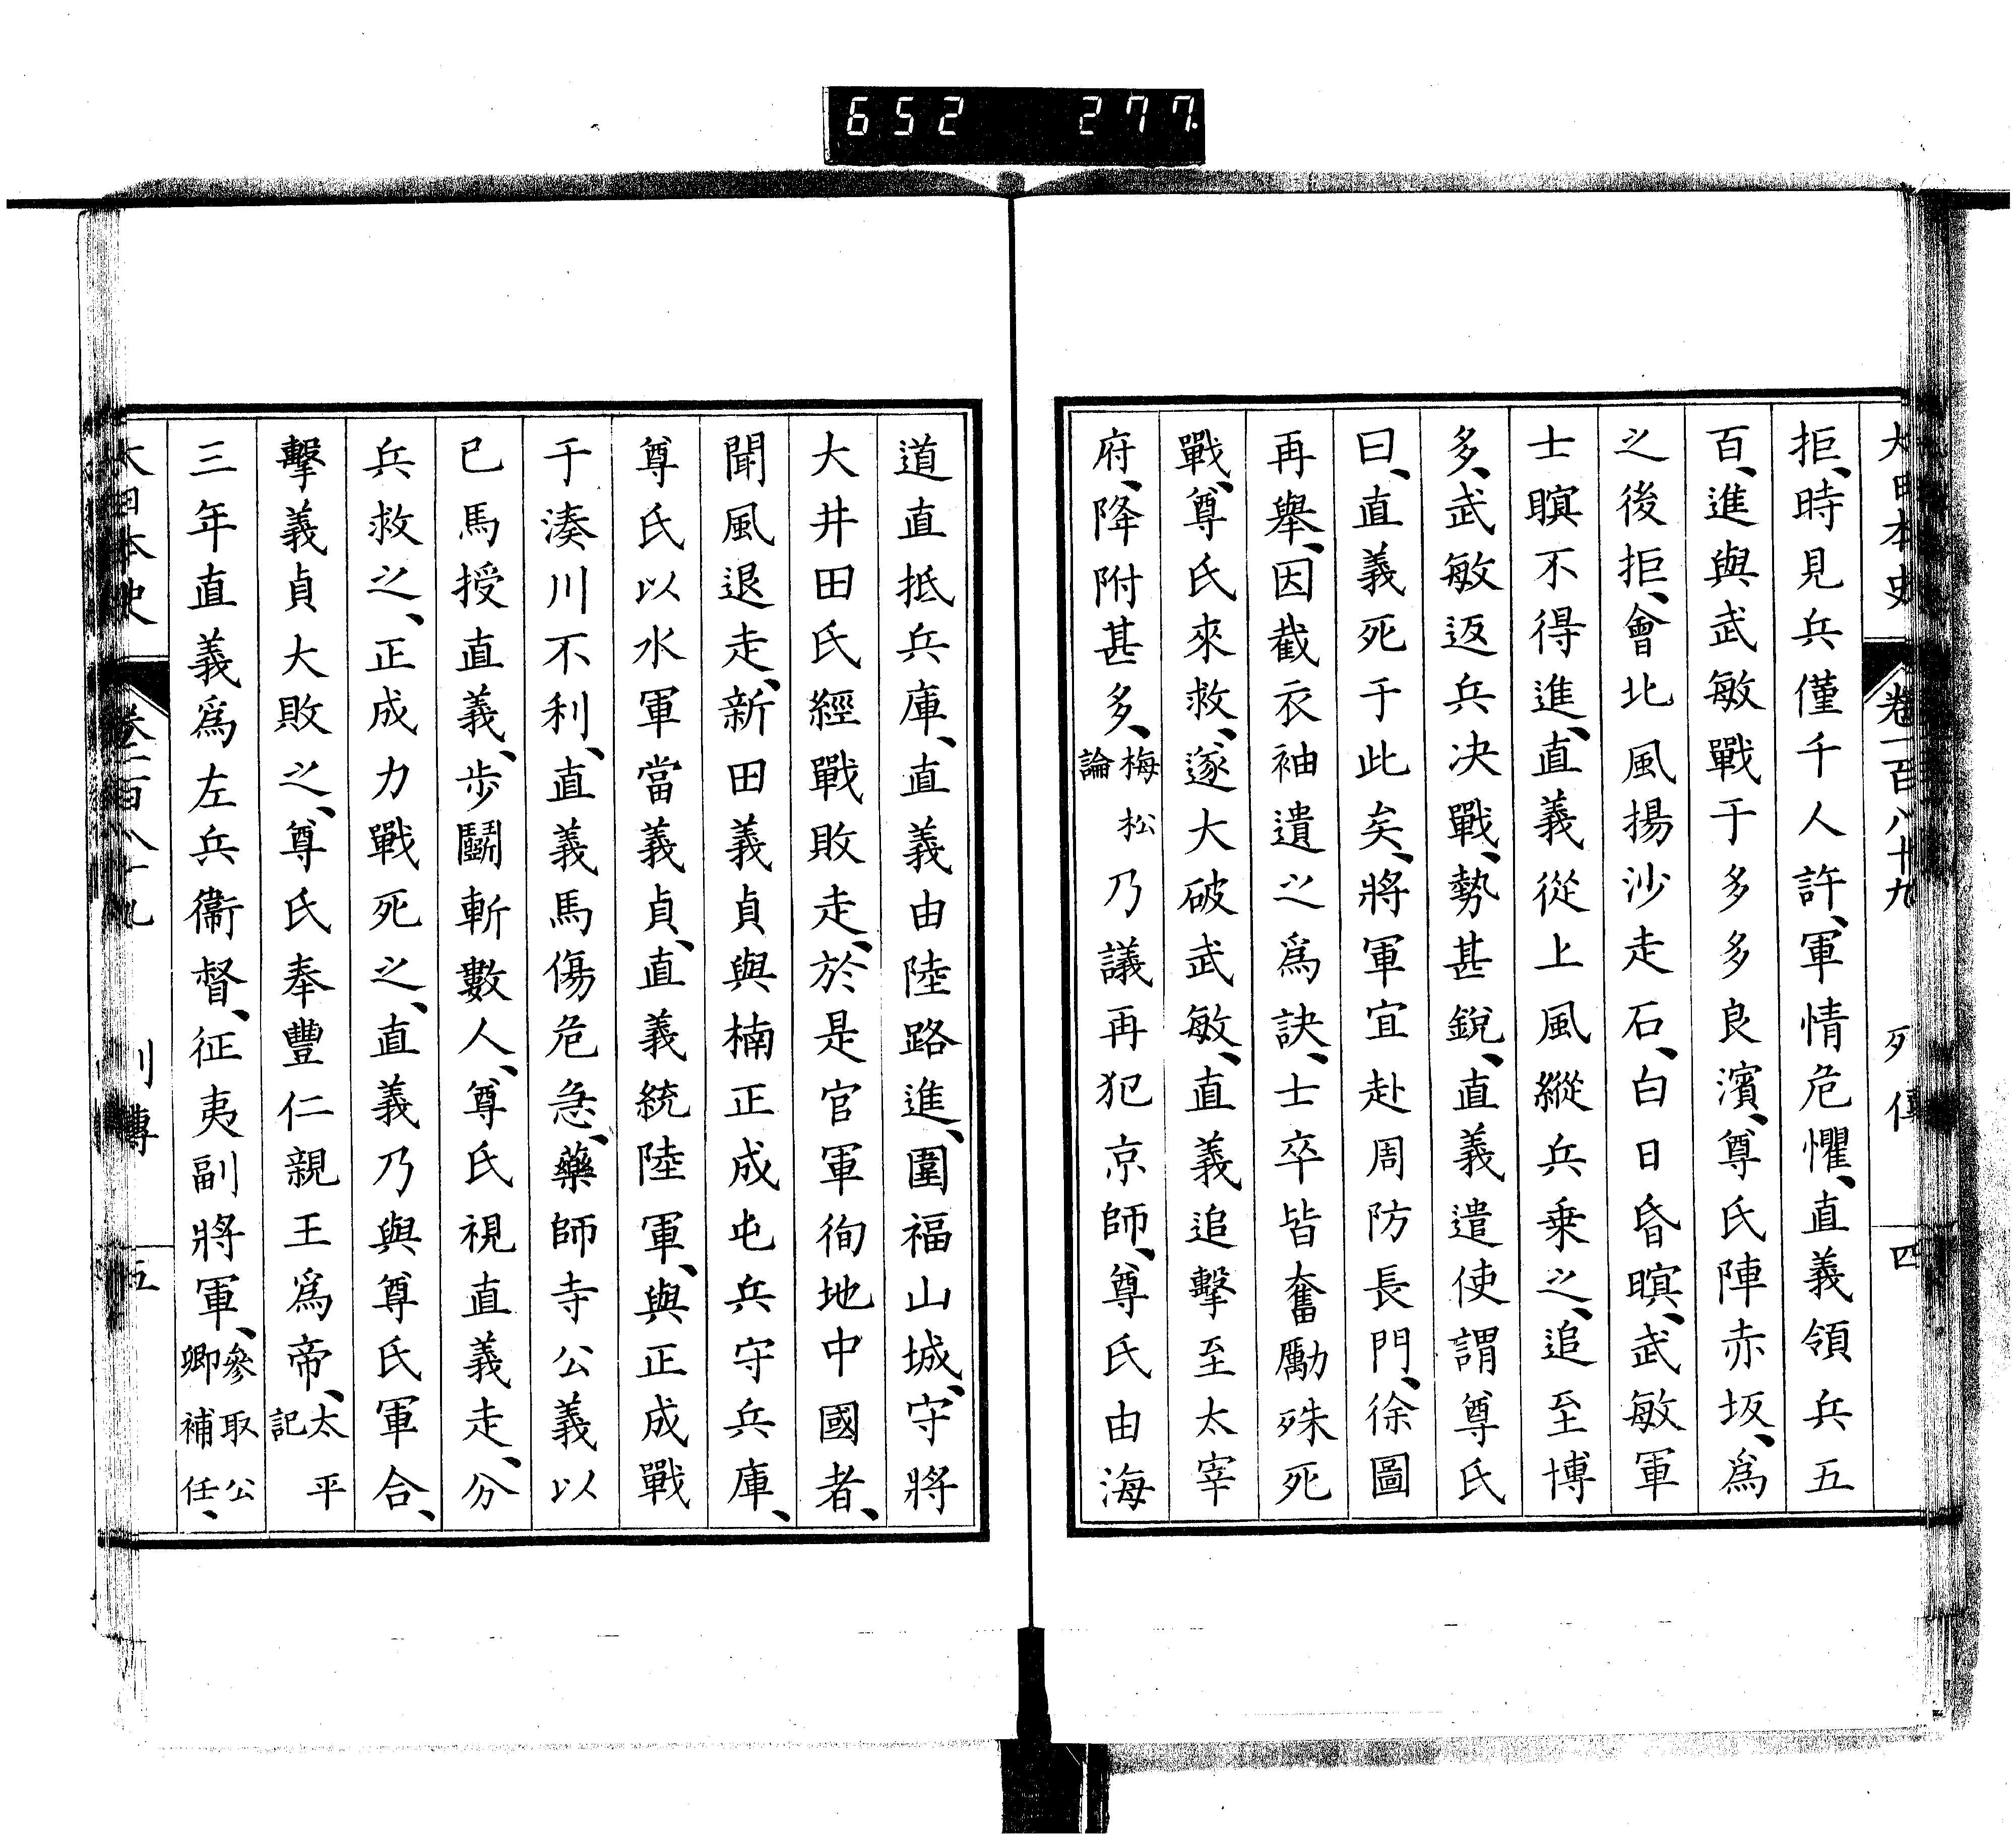 652 277.
大日本史 卷一百八十九 列傳 四
拒、時見兵僅千人許、軍情危懼、直義領兵五
百、進與武敏戰于多多良濱、尊氏陣赤坂、爲
之後拒、會北風揚沙走石、白日昏暝、武敏軍
士瞑不得進、直義從上風縱兵乗之、追至博
多、武敏返兵決戰、勢甚銳、直義遣使謂尊氏
曰、直義死于此矣、將軍宜赴周防長門、徐圖
再舉、因截衣袖遺之爲訣、士卒皆奮勵殊死
戰、尊氏來救、遂大破武敏、直義追擊至太宰
府、降附甚多、梅松論乃議再犯京師、尊氏由海
道直抵兵庫、直義由陸路進、圍福山城、守將
大井田氏經戰敗走、於是官軍徇地中國者、
聞風退走、新田義貞與楠正成屯兵守兵庫、
尊氏以水軍當義貞、直義統陸軍、與正成戰
于湊川不利、直義馬傷危急、藥師寺公義以
已馬授直義、步鬬斬數人、尊氏視直義走、分
兵救之、正成力戰死之、直義乃與尊氏軍合、
擊義貞大敗之、尊氏奉豐仁親王爲帝、太平記
三年直義爲左兵衞督、征夷副將軍、參取公卿補任、
大日本史 卷一百八十九 列傳 五